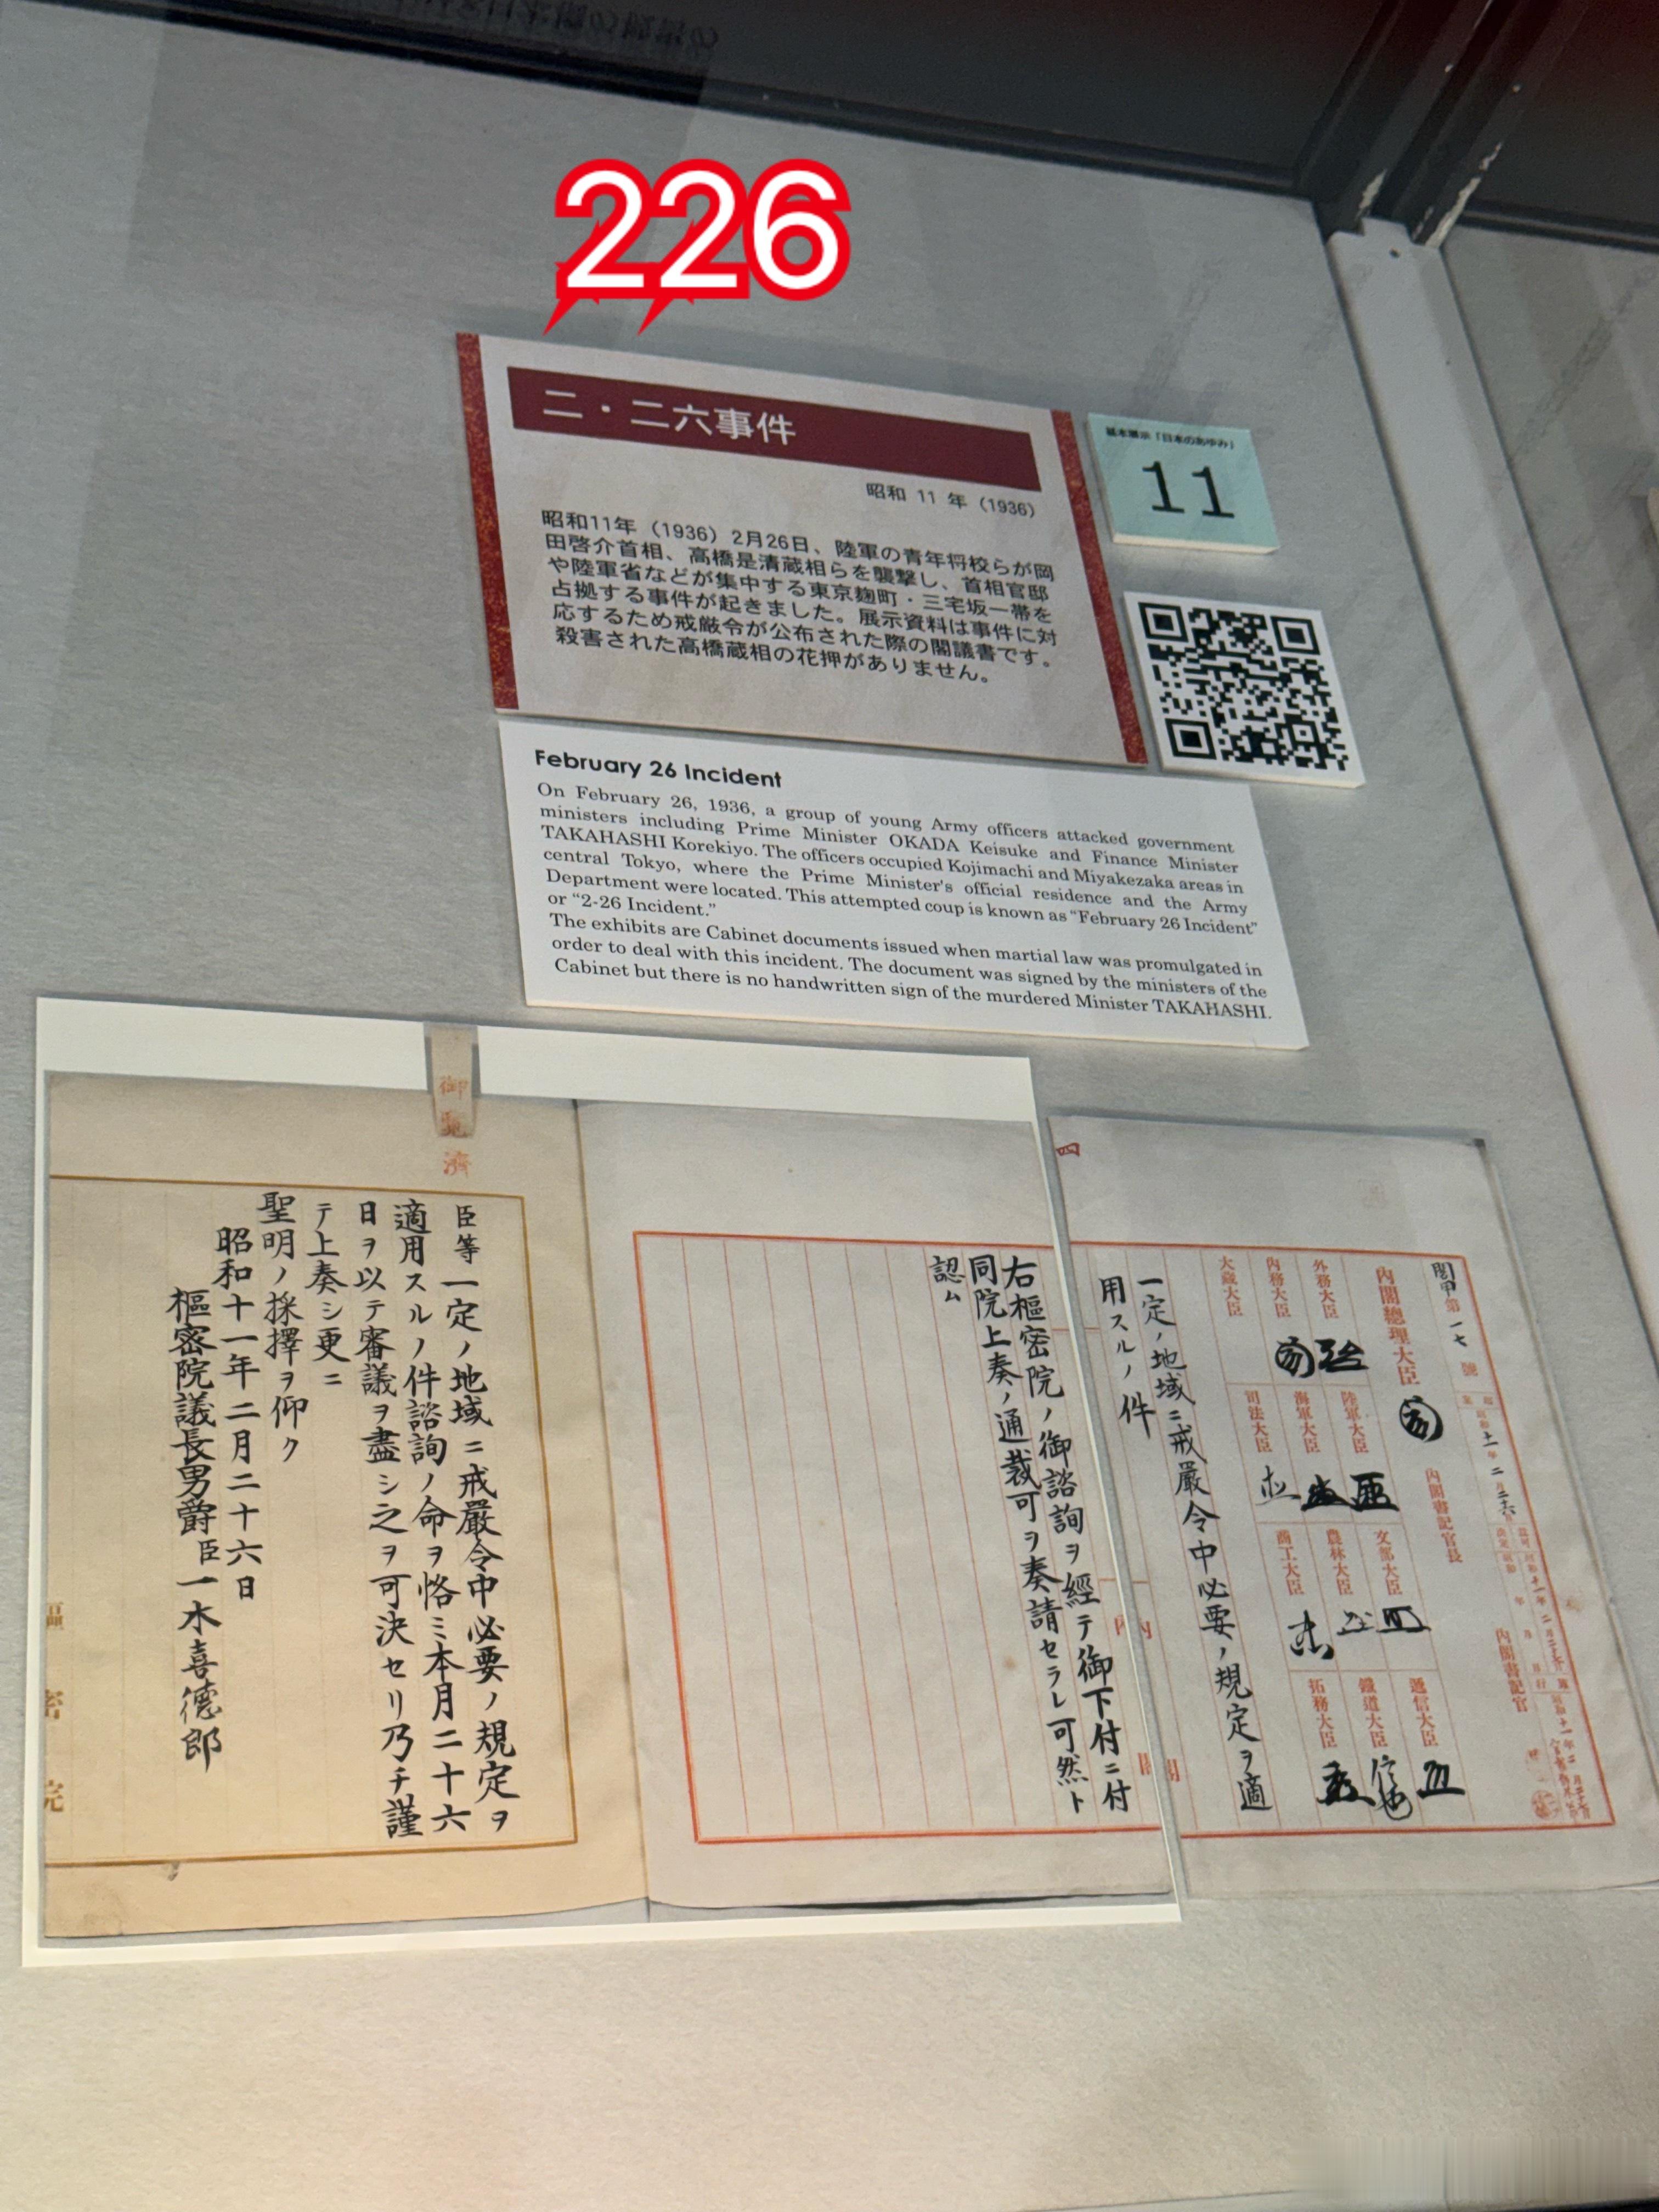 226
二・二六事件
昭和 11 年（1936）
昭和11年（1936）2月26日、陸軍の青年将校らが岡
田啓介首相、高橋是清蔵相らを襲撃し、首相官邸
や陸軍省などが集中する東京麹町・三宅坂一帯を
占拠する事件が起きました。展示資料は事件に対
応するため戒厳令が公布された際の閣議書です。
殺害された高橋蔵相の花押がありません。
基本展示「日本のあゆみ」
11
February 26 Incident
On February 26, 1936, a group of young Army officers attacked government
ministers including Prime Minister OKADA Keisuke and Finance Minister
TAKAHASHI Korekiyo. The officers occupied Kojimachi and Miyakezaka areas in
central Tokyo, where the Prime Minister's official residence and the Army
Department were located. This attempted coup is known as “February 26 Incident”
or “2-26 Incident.”
The exhibits are Cabinet documents issued when martial law was promulgated in
order to deal with this incident. The document was signed by the ministers of the
Cabinet but there is no handwritten sign of the murdered Minister TAKAHASHI.
四
閣甲第一七號
内閣書記官長
内閣書記官
内閣總理大臣
外務大臣
陸軍大臣
文部大臣
遞信大臣
内務大臣
海軍大臣
農林大臣
鐵道大臣
大藏大臣
司法大臣
商工大臣
拓務大臣
一定ノ地域ニ戒嚴令中必要ノ規定ヲ適
用スルノ件
右樞密院ノ御諮詢ヲ經テ御下付ニ付
同院上奏ノ通裁可ヲ奏請セラレ可然ト
認ム
御覧濟
臣等一定ノ地域ニ戒嚴令中必要ノ規定ヲ
適用スルノ件諮詢ノ命ヲ恪ミ本月二十六
日ヲ以テ審議ヲ盡シ之ヲ可決セリ乃チ謹
テ上奏シ更ニ
聖明ノ採擇ヲ仰ク
昭和十一年二月二十六日
樞密院議長男爵臣一木喜德郎
樞密院